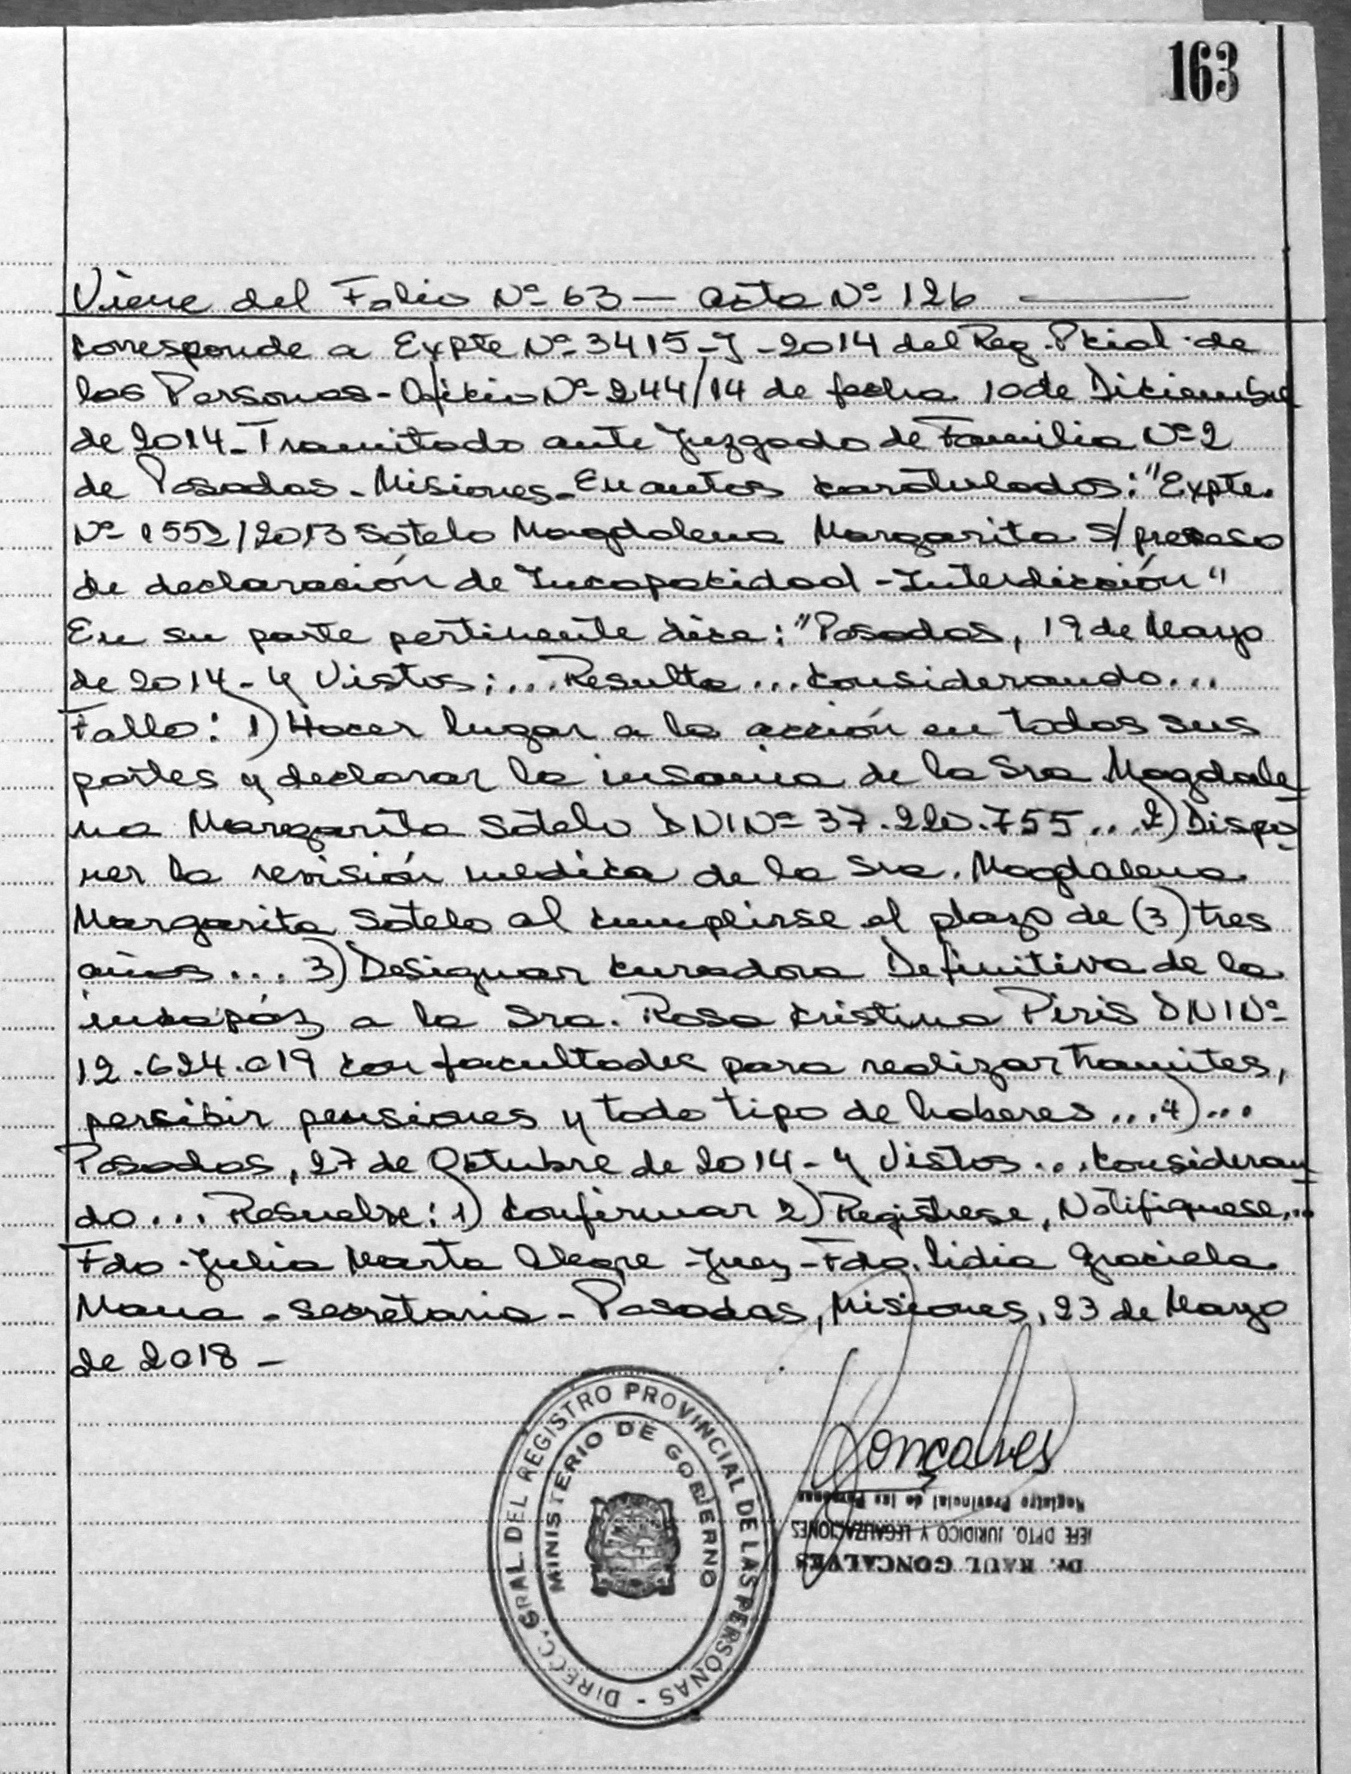 163
Viene del Folio Nº 63 — acta Nº 126 ———
corresponde a Expte Nº 3415-J-2014 del Reg. Pcial. de
las Personas - Oficio Nº 244/14 de fecha 10 de Diciembre
de 2014 - Tramitado ante Juzgado de Familia Nº 2
de Posadas - Misiones - En autos caratulados: "Expte.
Nº 1552/2013 Sotelo Magdalena Margarita S/ proceso
de declaración de Incapacidad - Interdicción"
En su parte pertinente dice: "Posadas, 19 de Mayo
de 2014 - y Vistos; ... Resulta ... Considerando ...
Fallo: 1) Hacer lugar a la acción en todas sus
partes y declarar la insania de la Sra Magdale
na Margarita Sotelo DNI Nº 37.220.755 ... 2) Dispo
ner la revisión medica de la Sra. Magdalena
Margarita Sotelo al cumplirse el plazo de (3) tres
años ... 3) Designar curadora Definitiva de la
incapáz a la Sra. Rosa Cristina Piris DNI Nº
12.624.019 con facultades para realizar Tramites,
percibir pensiones y todo tipo de haberes ... 4) ...
Posadas, 27 de Octubre de 2014 - y Vistos ... consideran
do ... Resuelve: 1) Confirmar 2) Registrese, Notifiquese...
Fdo. Julia Marta Alegre - Juez - Fdo. Lidia Graciela
- Secretaria - Posadas, Misiones, 23 de Mayo
de 2018 -
DIRECC. GRAL. DEL REGISTRO PROVINCIAL DE LAS PERSONAS -
MINISTERIO DE GOBIERNO
Goncalves
Registro Provincial de las Personas
JEFE DPTO. JURIDICO Y LEGALIZACIONES
Dr. RAUL GONCALVES